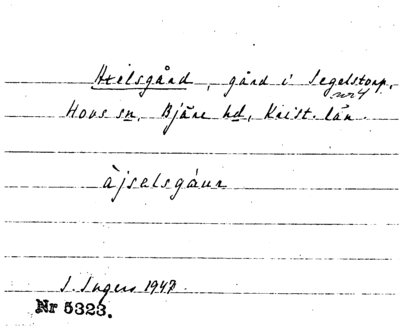 Axelsgård, gård i Segelstorp,
nr 4
Hovs sn, Bjäre hd, Krist. län.
àjselsgáur
I. Ingers 1947.
Nr 5323.